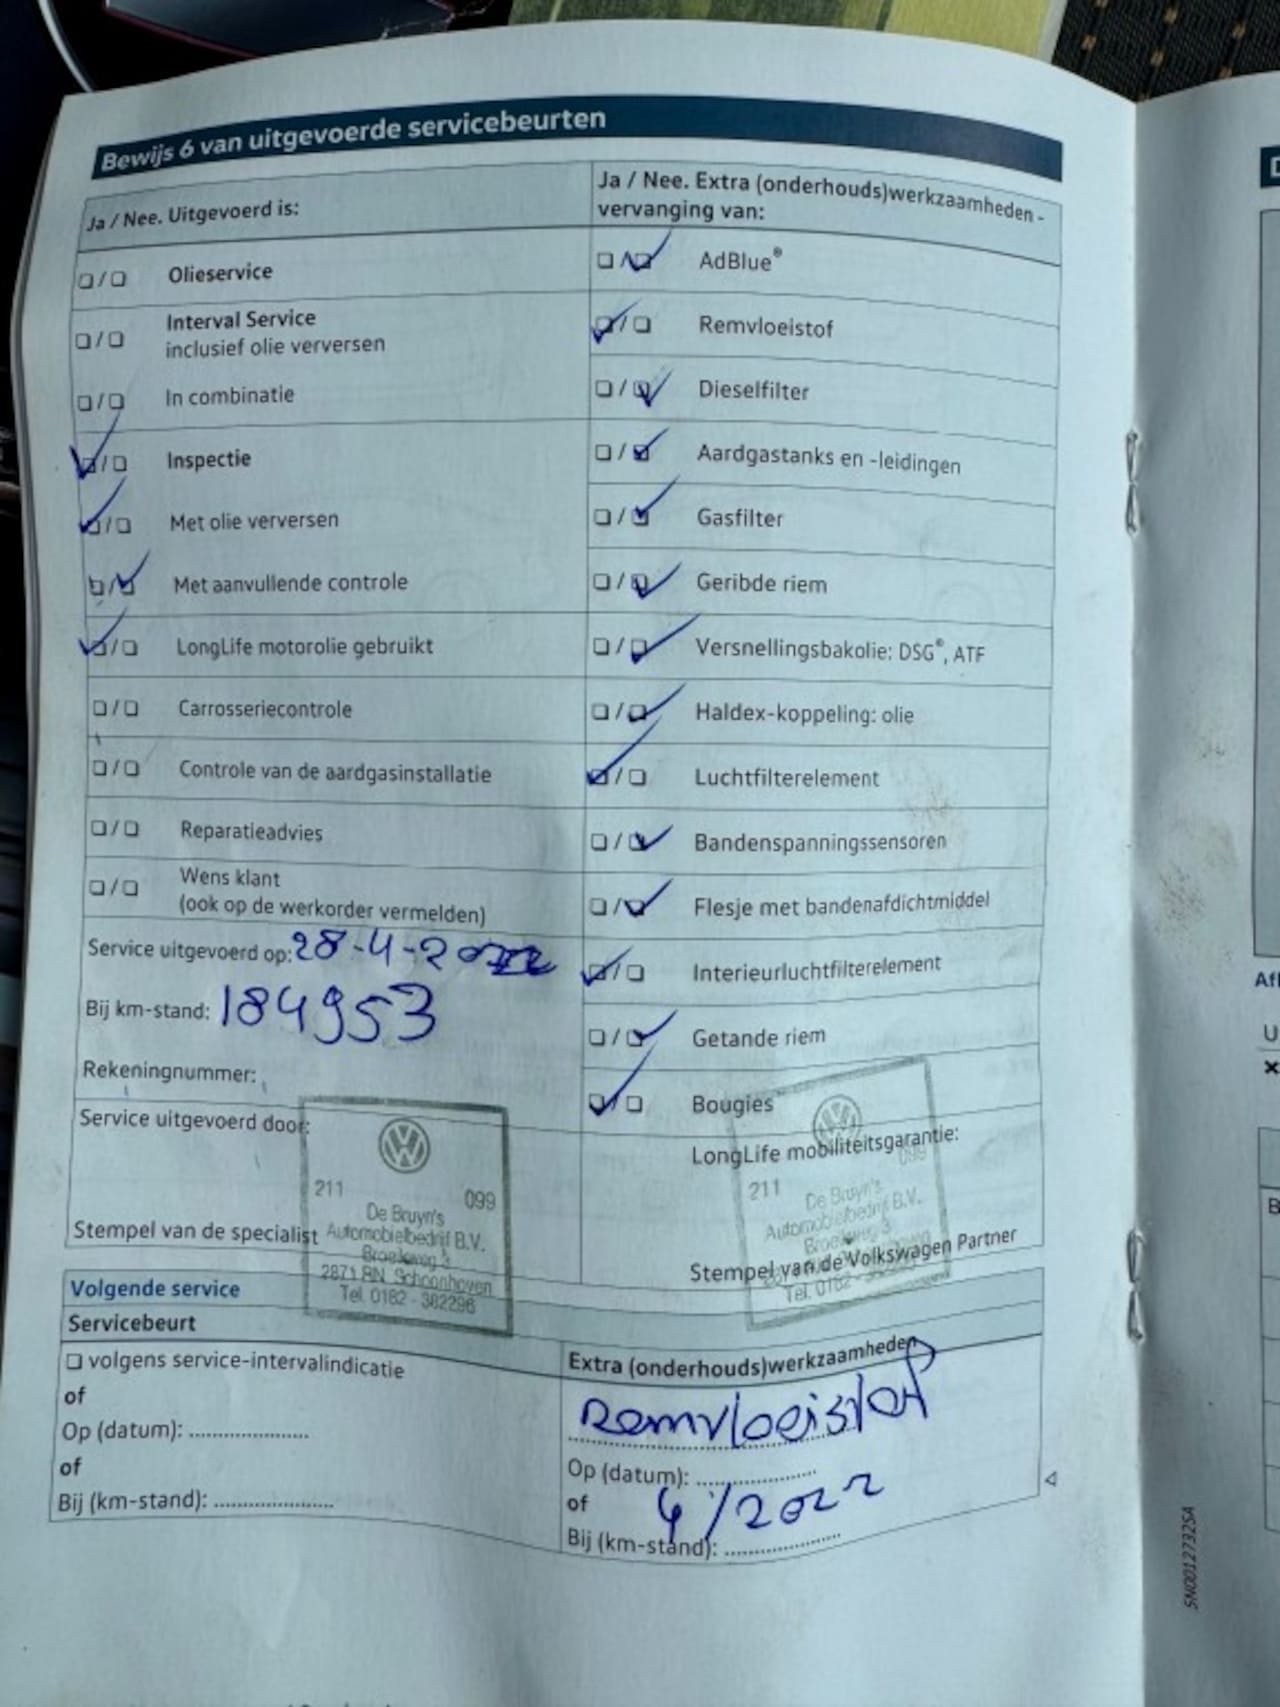 Bewijs 6 van uitgevoerde servicebeurten
Ja / Nee. Uitgevoerd is:
Olieservice
Interval Service
inclusief olie verversen
In combinatie
Inspectie
Met olie verversen
Met aanvullende controle
LongLife motorolie gebruikt
Carrosseriecontrole
Controle van de aardgasinstallatie
Reparatieadvies
Wens klant
(ook op de werkorder vermelden)
Service uitgevoerd op: 28-4-2022
Bij km-stand: 184953
Rekeningnummer:
Service uitgevoerd door:
211 099
De Bruyn's
Automobielbedrijf B.V.
Broekweg 3
2871 RN Schoonhoven
Tel. 0182 - 382296
Stempel van de specialist
Ja / Nee. Extra (onderhouds)werkzaamheden -
vervanging van:
AdBlue®
Remvloeistof
Dieselfilter
Aardgastanks en -leidingen
Gasfilter
Geribde riem
Versnellingsbakolie: DSG®, ATF
Haldex-koppeling: olie
Luchtfilterelement
Bandenspanningssensoren
Flesje met bandenafdichtmiddel
Interieurluchtfilterelement
Getande riem
Bougies
LongLife mobiliteitsgarantie:
211 099
De Bruyn's
Automobielbedrijf B.V.
Broekweg 3
Tel. 0182
Stempel van de Volkswagen Partner
Volgende service
Servicebeurt
volgens service-intervalindicatie
of
Op (datum): ....................
of
Bij (km-stand): ....................
Extra (onderhouds)werkzaamheden
Remvloeistof
Op (datum): ....................
of 4/2022
Bij (km-stand): ....................
5N0012732SA
Afl
U